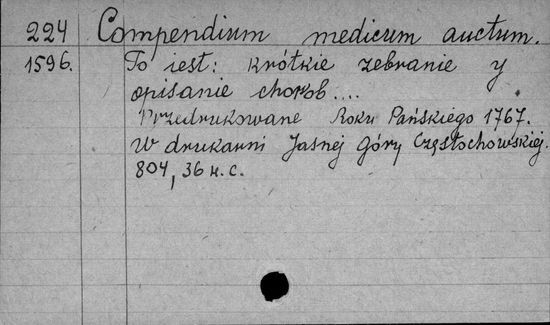 224 Compendium medicum auctum.
1596. To iest: krótkie zebranie y
opisanie chorob....
Przedrukowane Roku Pańskiego 1767.
W drukarni Jasnej Góry Częstochowskiej.
804, 36 н. с.